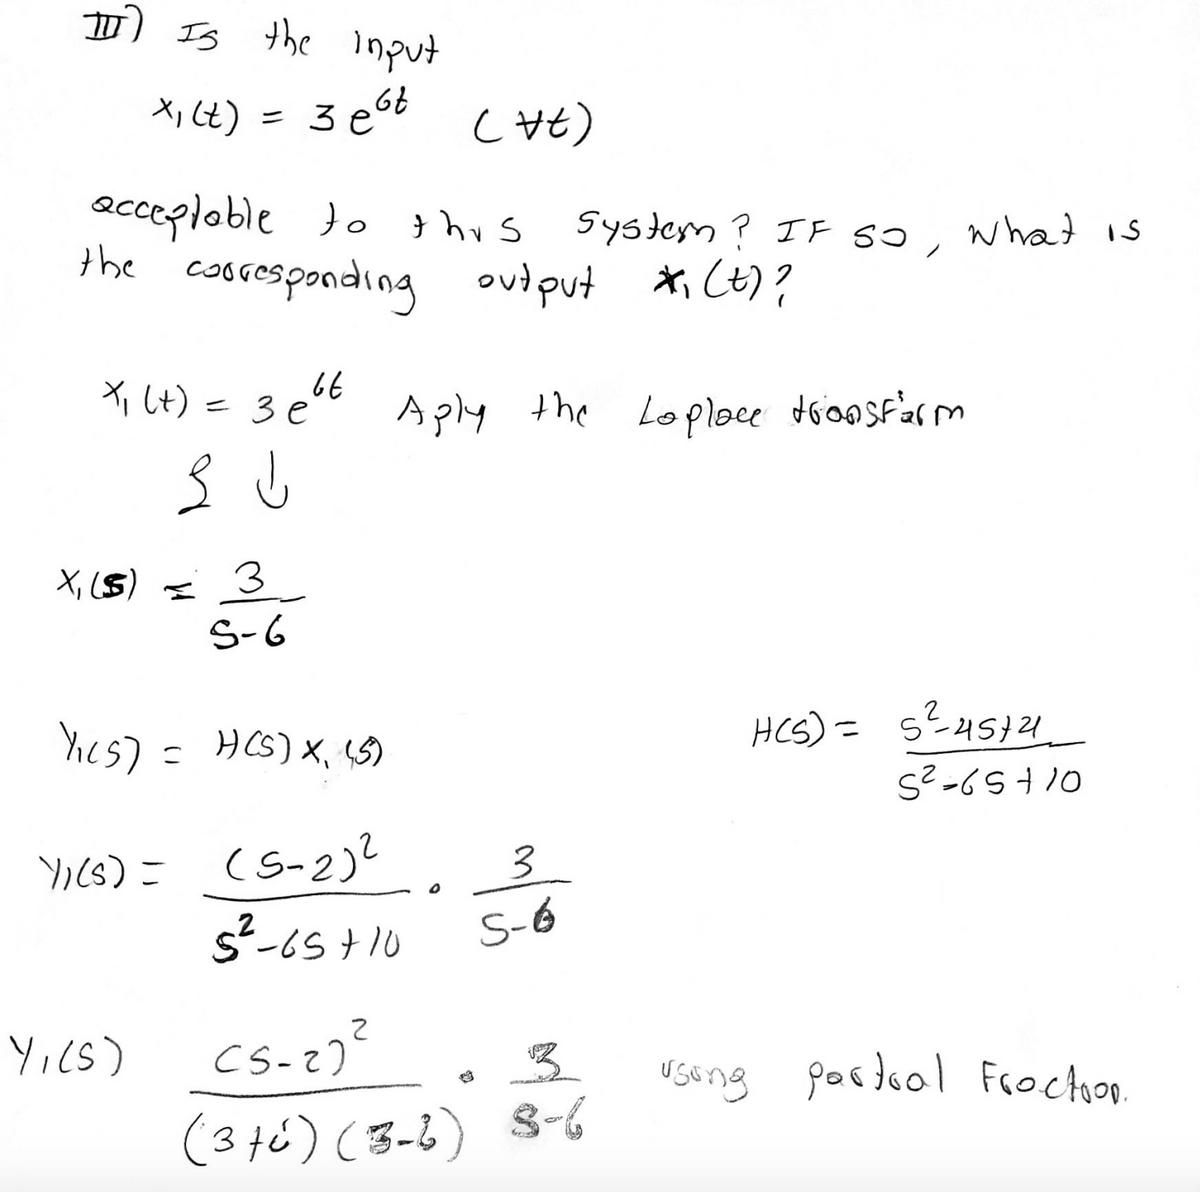 III) Is the input
x₁(t) = 3e^6t (∀t)
acceptable to this system? IF so, what is
the corresponding output x₁(t)?
x₁(t) = 3e^6t Aply the Laplace transform
ℒ ↓
X₁(s) = 3/(s-6)
Y₁(s) = H(s) X₁(s) H(s) = (s²-4s+4)/(s²-6s+10)
Y₁(s) = (s-2)²/(s²-6s+10) · 3/(s-6)
Y₁(s) (s-2)²/((3+i)(3-i)) · 3/(s-6) using partial Fraction.